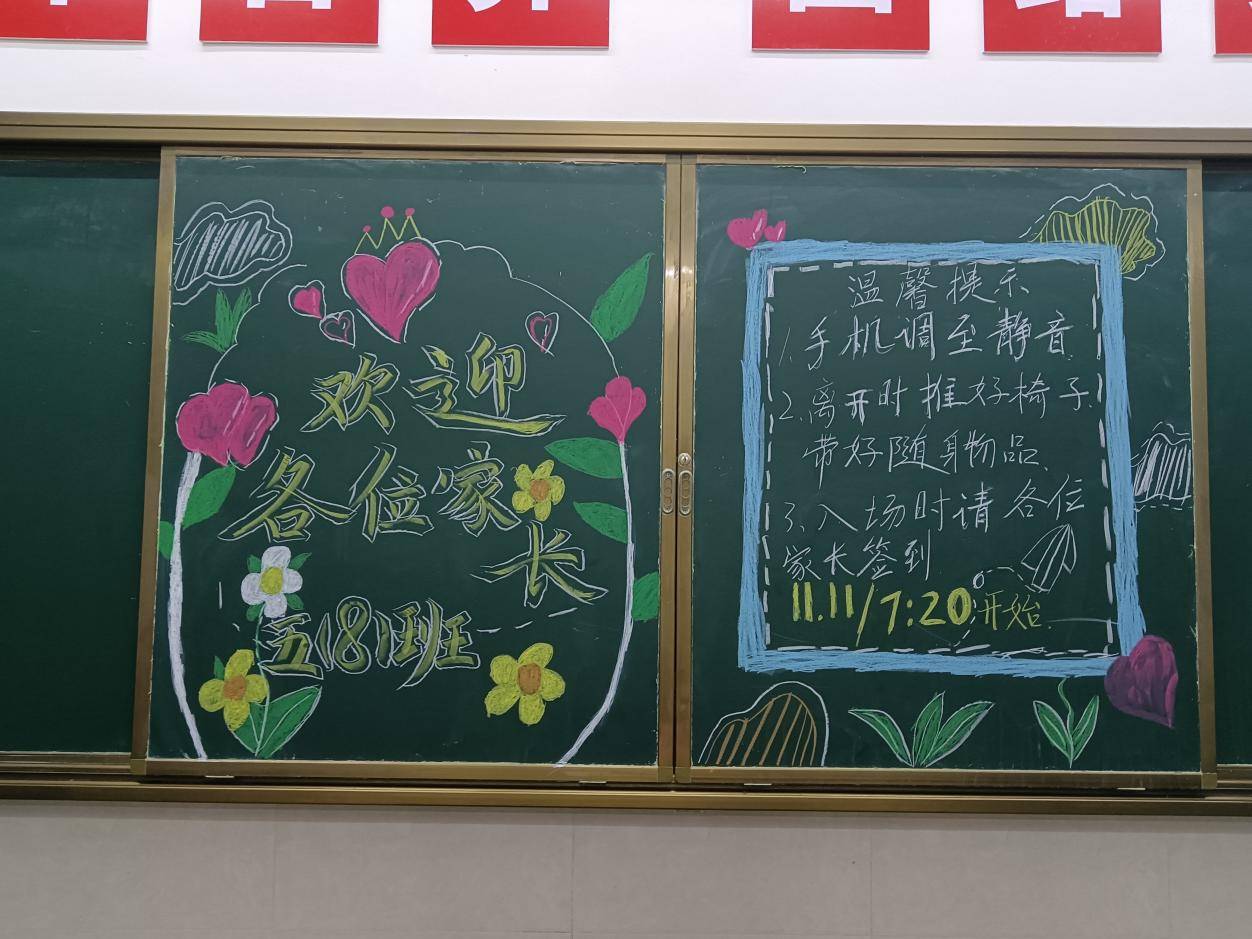 欢迎
各位家
长
五(8)班
温馨提示
1.手机调至静音
2.离开时推好椅子、
带好随身物品、
3、入场时请各位
家长签到
11.11/7:20开始